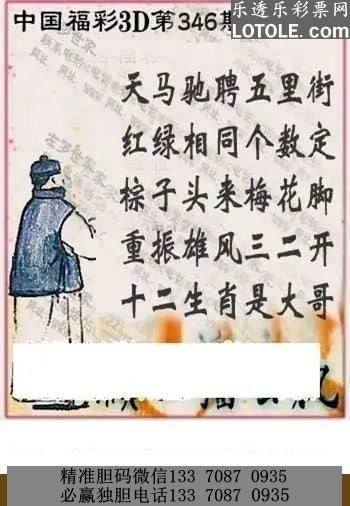 中国福彩3D第346期
乐透乐彩票网
LOTOLE.COM
天马驰聘五里街
红绿相同个数定
棕子头来梅花脚
重振雄风三二开
十二生肖是大哥
精准胆码微信133 7087 0935
必赢独胆电话133 7087 0935